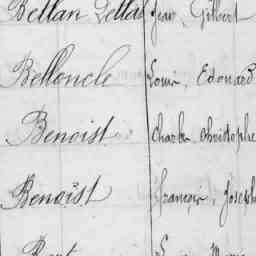 Bellan Dellas Jean, Gilbert
Belloncle Louis, Edouard
Benoist Charles Christophe
Benoist François, Joseph